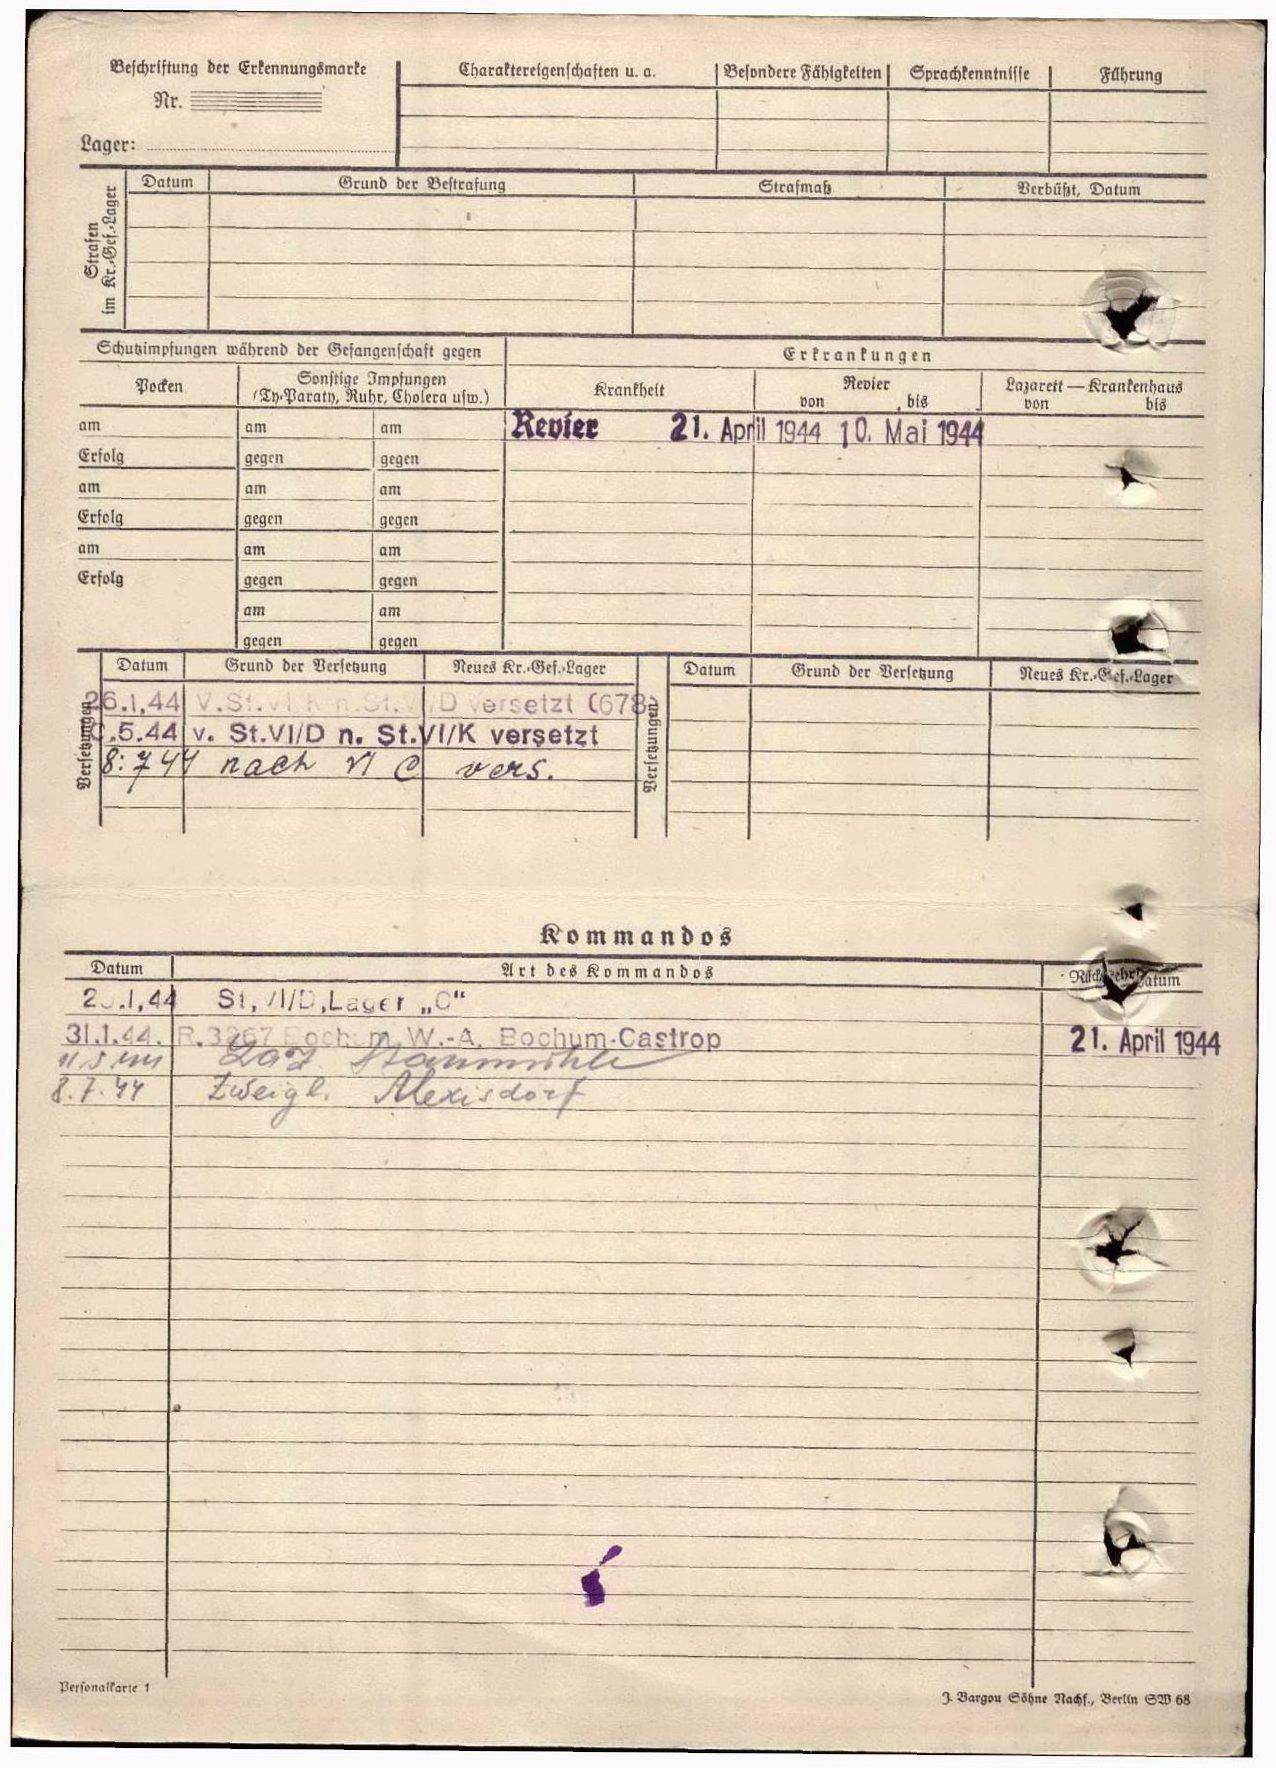 Beschriftung der Erkennungsmarke
Nr.
Lager:
Charaktereigenschaften u. a.
Besondere Fähigkeiten
Sprachkenntnisse
Führung
Strafen
im Kr.-Gef.-Lager
Datum
Grund der Bestrafung
Strafmaß
Verbüßt, Datum
Schutzimpfungen während der Gefangenschaft gegen
Erkrankungen
Pocken
Sonstige Impfungen
(Ty.-Paraty, Ruhr, Cholera usw.)
Krankheit
Revier
von bis
Lazarett — Krankenhaus
von bis
am am am
Revier 21. April 1944 10. Mai 1944
Erfolg gegen gegen
am am am
Erfolg gegen gegen
am am am
Erfolg gegen gegen
am am
gegen gegen
Versetzungen
Datum Grund der Versetzung Neues Kr.-Gef.-Lager
26.1.44 V.St.VI/K n.St.VI/D versetzt (678)
.5.44 v. St.VI/D n. St.VI/K versetzt
8.7 44 nach VI C vers.
Versetzungen
Datum Grund der Versetzung Neues Kr.-Gef.-Lager
Kommandos
Datum Art des Kommandos Rückkehr Datum
2 .1,44 St,VI/D,Lager „C“
31.1.44. R.3267 Bochum W.-A. Bochum-Castrop 21. April 1944
Laz Staumühle
8.7.44 Zweigl. Alexisdorf
Personalkarte 1
J. Bargou Söhne Nachf., Berlin SW 68